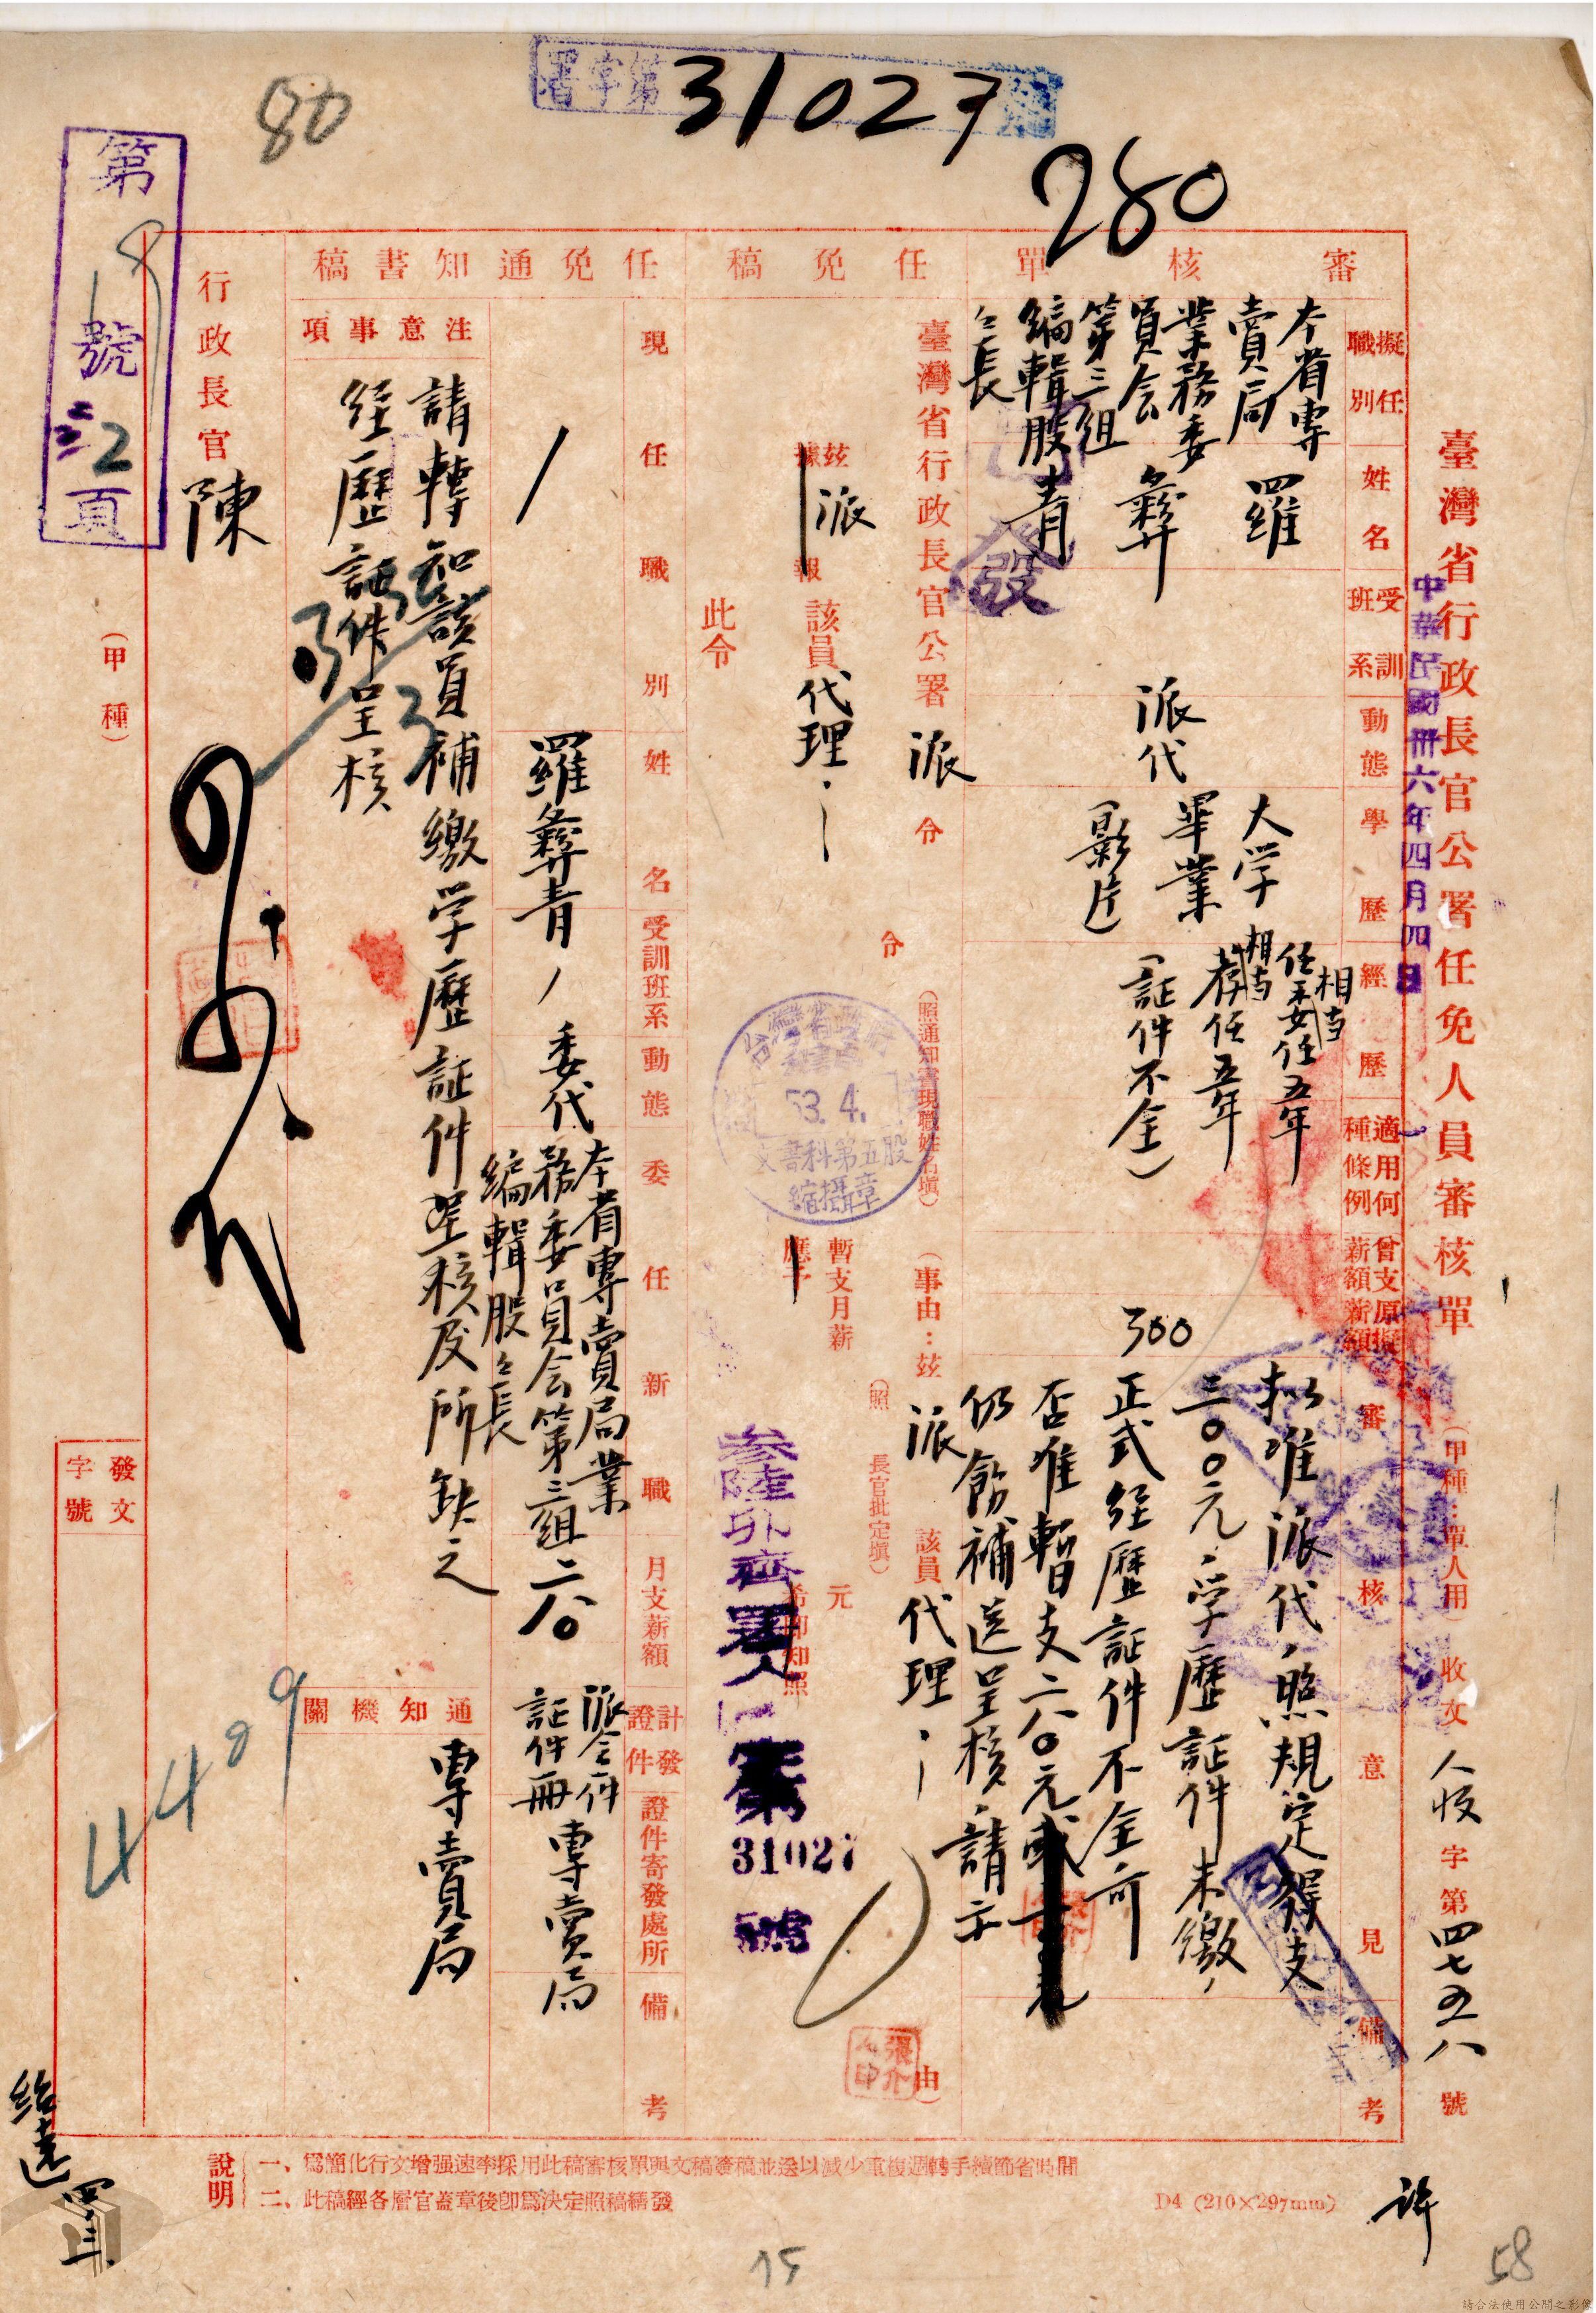 署字第31027號
280
80
臺灣省行政長官公署任免人員審核單
(甲種：單人用)
收文 人收字第四七五八號
中華民國卅六年四月四日
審核單
擬任職別
本省專
賣局
業務委
員会
第三組
編輯股
々長
姓名
羅
彝
青
受訓班系
動態
派代
學歷
大学
畢業
(影片)
經歷
相当
委任五年
相当
荐任五年
(証件不全)
適用何種條例
曾支薪額
原擬薪額
300
審核意見
拟准派代，照規定得支
三〇〇元，学歷証件未繳，
正式経歷証件不全可
否准暫支二八〇元
仍飭補送呈核，請示
備考
任免稿
臺灣省行政長官公署 派 令
令
(照通知書現職姓名塡)
(事由：茲 派 該員 代理 由)
茲
據
派
報
該員
代理
暫支月薪
應予
(照 長官批定塡)
元
希即知照
此令
發
53.4.
文書科第五股
縮攝章
31027
號
任免通知書稿
現任職別
姓名
羅彝青
受訓班系
動態
委代
委任新職
本省專賣局業
務委員会第三組
編輯股々長
月支薪額
二八〇
計發證件
派令一件
証件一冊
證件寄發處所
專賣局
備考
注意事項
請轉知該員補繳学歷証件呈核及所缺之
经歷証件呈核
通知機關
專賣局
行政長官 陳
(甲種)
發文
字號
第18號
江2頁
4409
說明
一、爲簡化行文增强速率採用此稿審核單與文稿簽稿並送以減少重復週轉手續節省時間
二、此稿經各層官蓋章後卽爲決定照稿繕發
D4 (210×297mm)
許
15
58
請合法使用公開之影像